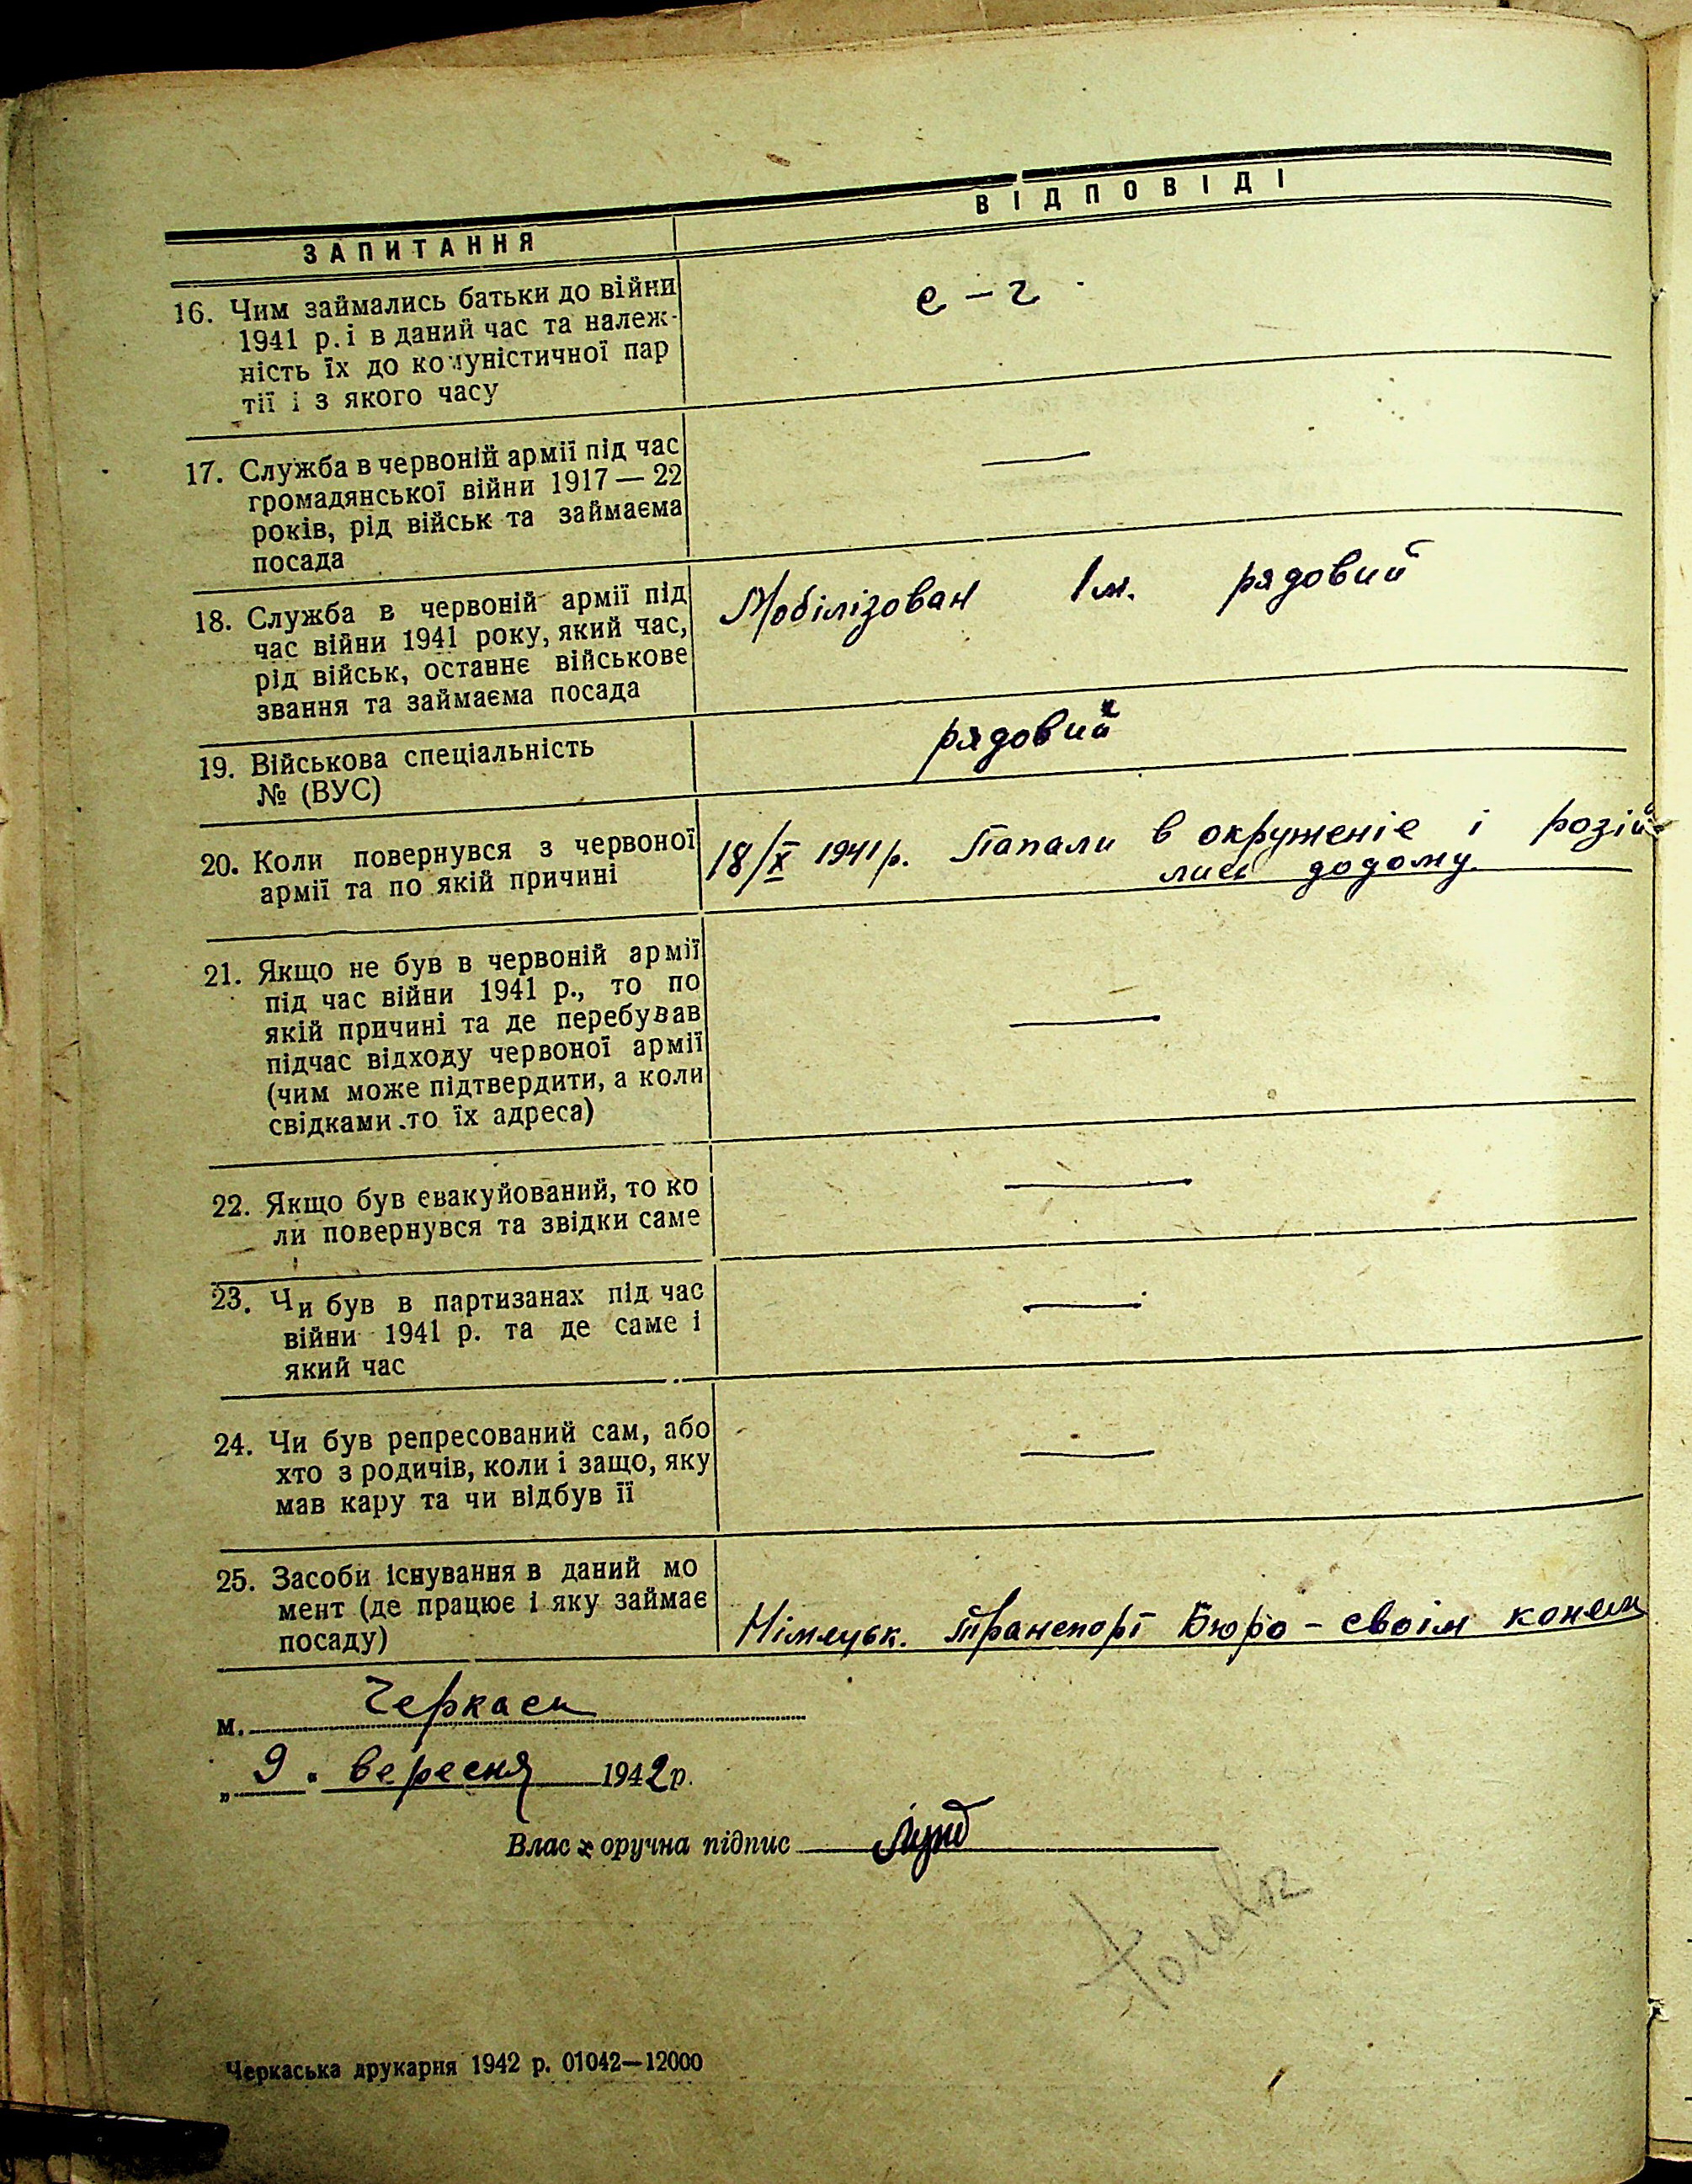 ЗАПИТАННЯ
ВІДПОВІДІ
16. Чим займались батьки до війни
1941 р. і в даний час та належ-
ність їх до комуністичної пар
тії і з якого часу
с-г
17. Служба в червоній армії під час
громадянської війни 1917 — 22
років, рід військ та займаєма
посада
—
18. Служба в червоній армії під
час війни 1941 року, який час,
рід військ, останнє військове
звання та займаєма посада
Мобілізован 1 м. рядовий
19. Військова спеціальність
№ (ВУС)
рядовий
20. Коли повернувся з червоної
армії та по якій причині
18/X 1941 р. Папали в окруженіє і розій-
лись додому
21. Якщо не був в червоній армії
під час війни 1941 р., то по
якій причині та де перебував
підчас відходу червоної армії
(чим може підтвердити, а коли
свідками то їх адреса)
—
22. Якщо був евакуйований, то ко
ли повернувся та звідки саме
—
23. Чи був в партизанах під час
війни 1941 р. та де саме і
який час
—
24. Чи був репресований сам, або
хто з родичів, коли і защо, яку
мав кару та чи відбув її
—
25. Засоби існування в даний мо
мент (де працює і яку займає
посаду)
Німецьк. Транспорт Бюро - своїм конем
м. Черкаси
„ 9 " вересня 1942 р.
Власноручна підпис
Черкаська друкарня 1942 р. 01042—12000